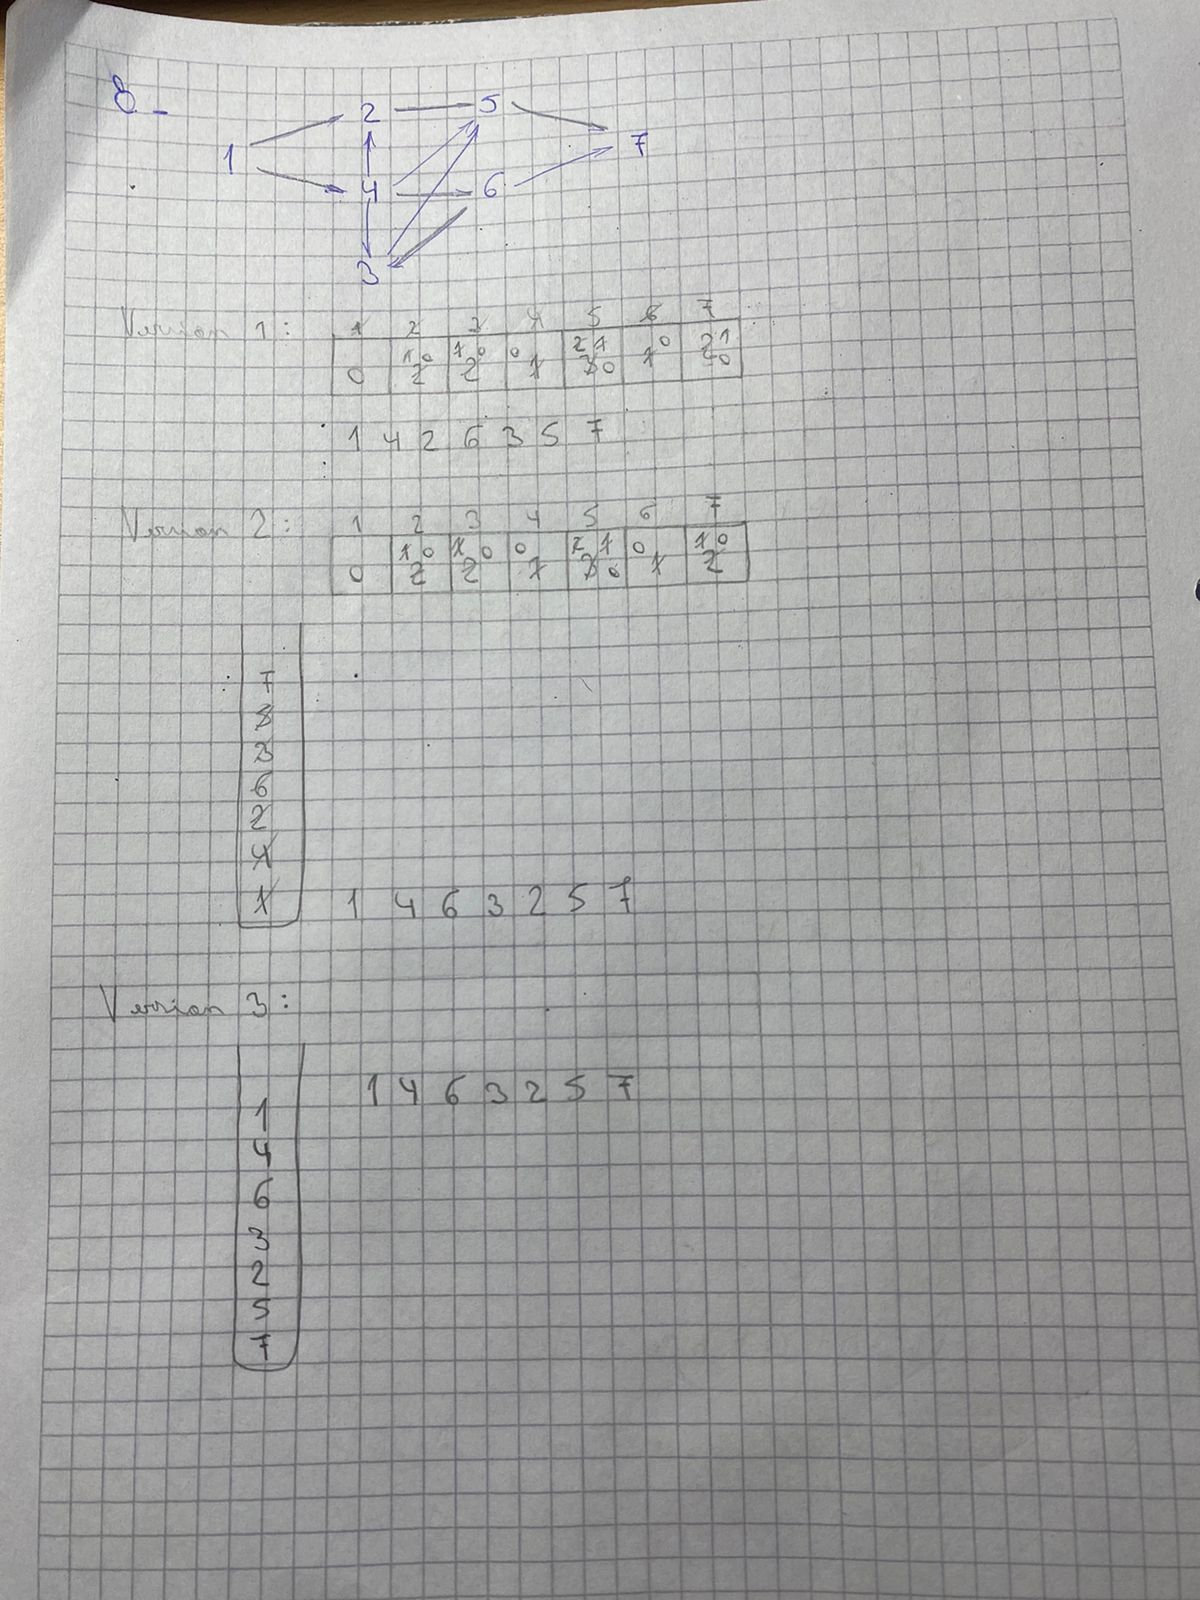 8-
2 5
1 7
4 6
3
Version 1: 1 2 3 4 5 6 7
0 1 0 2 1 0 2 0 1 2 1 3 0 1 0 2 1 0
1 4 2 6 3 5 7
Version 2: 1 2 3 4 5 6 7
0 1 0 2 1 0 2 0 1 2 1 3 0 0 1 1 0 2
7
5
3
6
2
4
1 1 4 6 3 2 5 7
Version 3:
1 4 6 3 2 5 7
1
4
6
3
2
5
7